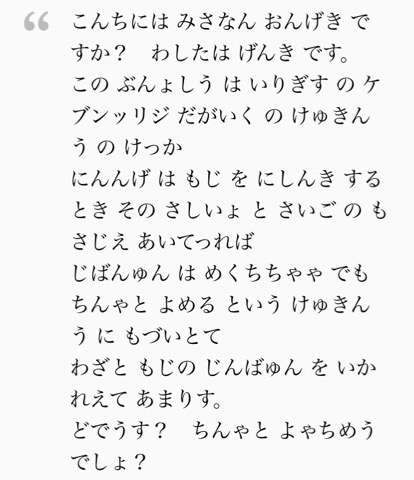 “
こんちには みさなん おんげき で
すか？　わしたは げんき です。
この ぶんょしう は いりぎす の ケ
ブンッリジ だがいく の けゅきん
う の けっか
にんんげ は もじ を にしんき する
とき その さしいょ と さいご の も
さじえ あいてっれば
じばんゅん は めくちちゃゃ でも
ちんゃと よめる という けゅきん
う に もづいとて
わざと もじの じんばゅん を いか
れえて あまりす。
どでうす？　ちんゃと よゃちめう
でしょ？